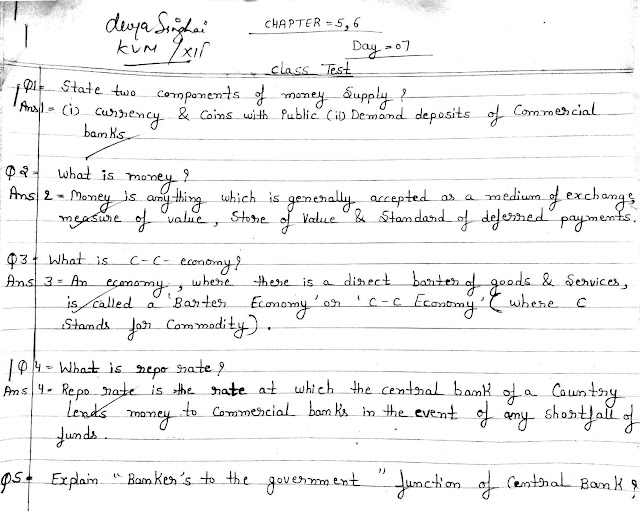 Devya Singhai
KVM / XII
CHAPTER = 5, 6
Day = 07
Class Test
Q1 = State two components of money Supply ?
Ans 1 = (i) Currency & Coins with Public (ii) Demand deposits of Commercial
banks.
Q 2 = What is money ?
Ans 2 = Money is anything which is generally accepted as a medium of exchange,
measure of value, Store of Value & Standard of deferred payments.
Q3 = What is C-C- economy ?
Ans 3 = An economy, where there is a direct barter of goods & Services,
is called a 'Barter Economy' or 'C-C Economy' ( where C
Stands for Commodity).
Q 4 = What is repo rate ?
Ans 4 = Repo rate is the rate at which the central bank of a Country
Lends money to Commercial banks in the event of any shortfall of
funds.
Q5 = Explain "Banker's to the government" function of Central Bank ?